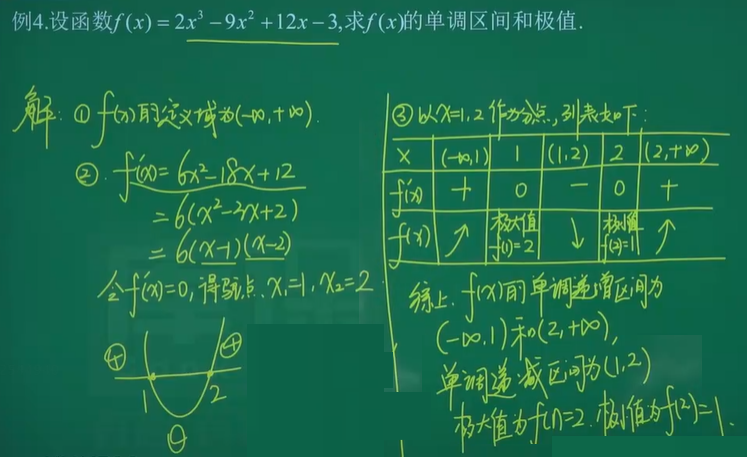 例4.设函数f(x)=2x³-9x²+12x-3,求f(x)的单调区间和极值.
解:① f(x)的定义域为(-∞,+∞).
② f'(x)=6x²-18x+12
=6(x²-3x+2)
=6(x-1)(x-2)
令f'(x)=0,得驻点.x₁=1,x₂=2
⊕ ⊕
1 2
⊖
③ 以x=1,2作为分点,列表如下:
x (-∞,1) 1 (1,2) 2 (2,+∞)
f'(x) + 0 - 0 +
f(x) ↗ 极大值f(1)=2 ↓ 极小值f(2)=1 ↗
综上.f(x)的单调递增区间为
(-∞,1)和(2,+∞),
单调递减区间为(1,2)
极大值为f(1)=2.极小值为f(2)=1.